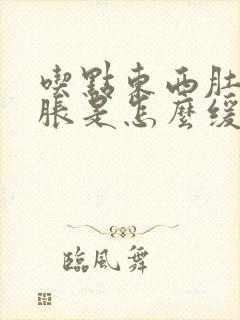 喫點東西肚
脹是怎麼緩
臨風舞